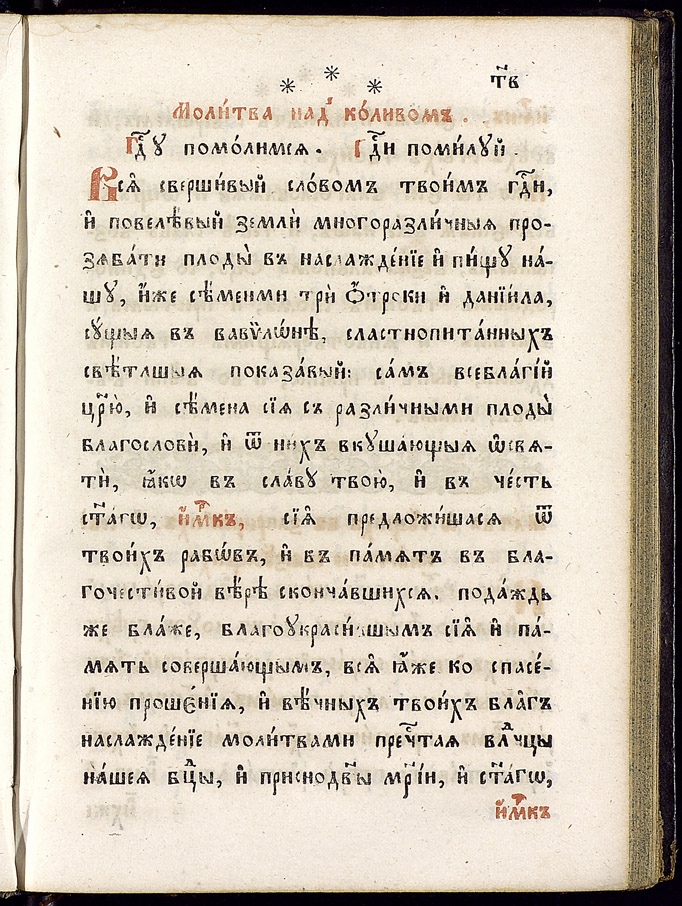 т҃в
* * *
Моли́тва над̾ ко́ливомъ.
Гдⷭ҇у помо́лимся. Гдⷭ҇и поми́луй.
Всѧ̀ сверши́вый сло́вомъ твои́мъ гдⷭ҇и,
и҆ повелѣ́вый землѝ многоразли́чныя про-
зяба́ти плоды̀ въ наслажде́нїе и҆ пи́щу на́-
шу, и҆́же сѣ́менми трѝ ѻ҆́троки и҆ данїи́ла,
су́щыя въ вавѷлѡ́нѣ, сластнопита́нныхъ
свѣтлшыя показа́вый: са́мъ всебл҃гі́й
цр҃ю̀, и҆ сѣ́мена сїѧ̀ съ разли́чными плоды̀
благословѝ, и҆ ѿ ни́хъ вкуша́ющыя ѡ҆свя-
тѝ, ꙗ҆́кѡ въ сла́ву твою̀, и҆ въ че́сть
ст҃а́гѡ, и҆́мⷬ҇къ, сїѧ̀ предложи́шася ѿ
твои́хъ рабѡ́въ, и҆ въ па́мять въ бла-
гочести́вой вѣ́рѣ сконча́вшихся. пода́ждь
же бла́же, благоукраси́вшымъ сїѧ̀ и҆ па́-
мять соверша́ющымъ, всѧ̀ ꙗ҆́же ко спасе́-
нїю проше́нїя, и҆ вѣ́чныхъ твои́хъ бла̑гъ
наслажде́нїе моли́твами пречⷭ҇тыя влⷣчцы
на́шея бцⷣы, и҆ приснодв҃ы мр҃і́и, и҆ ст҃а́гѡ,
и҆́мⷬ҇къ